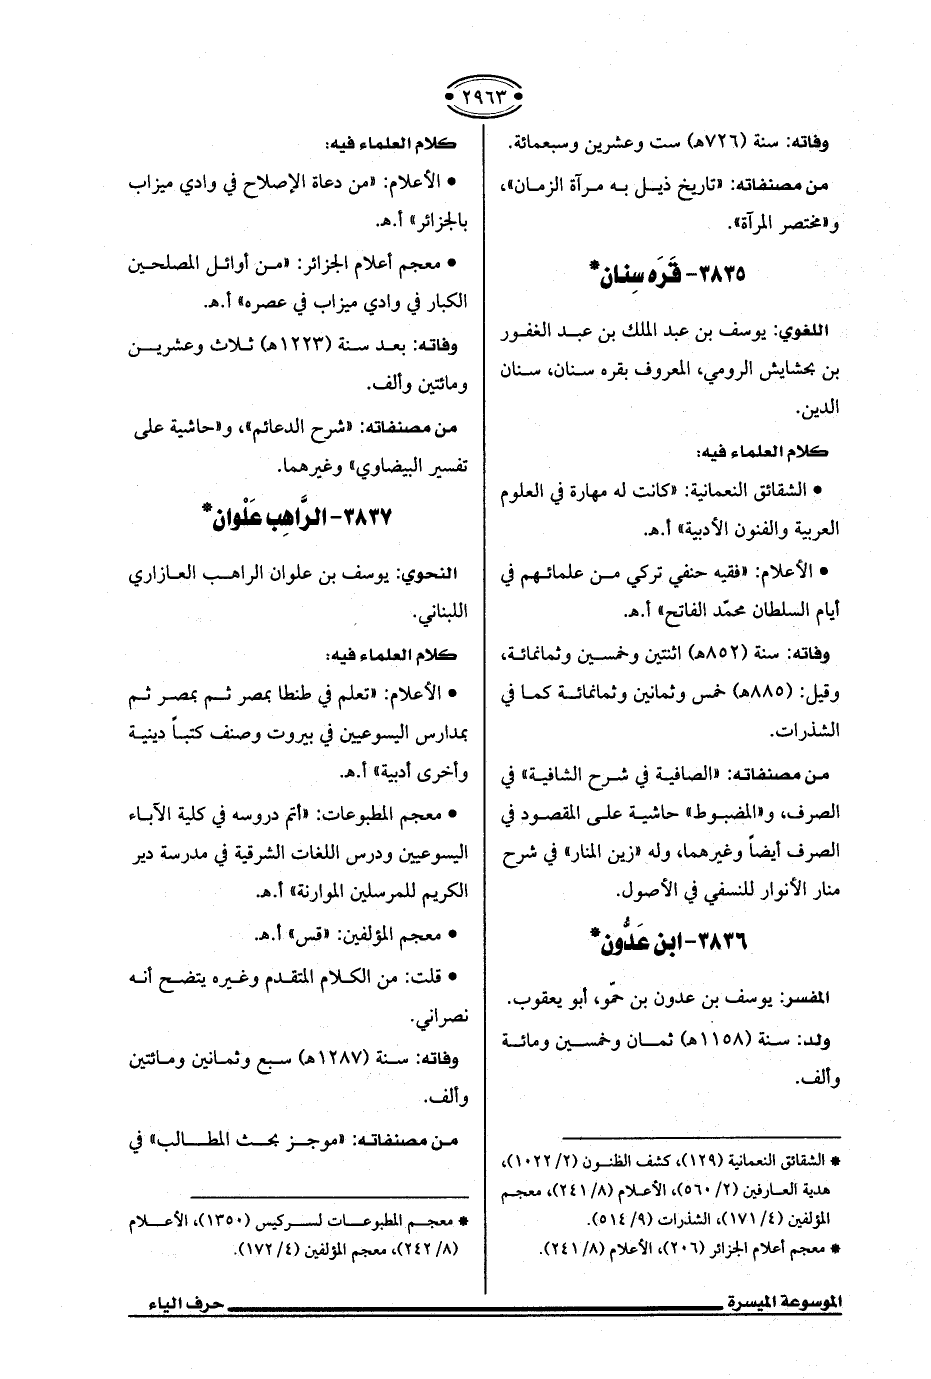 ٢٩٦٣
وفاته: سنة (٧٢٦هـ) ست وعشرين وسبعمائة.
من مصنفاته: «تاريخ ذيل به مرآة الزمان»،
و«مختصر المرآة».
٣٨٣٥- قَرَه سِنان*
اللغوي: يوسف بن عبد الملك بن عبد الغفور
بن بخشايش الرومي، المعروف بقره سنان، سنان
الدين.
كلام العلماء فيه:
• الشقائق النعمانية: «كانت له مهارة في العلوم
العربية والفنون الأدبية» أ.هـ.
• الأعلام: «فقيه حنفي تركي من علمائهم في
أيام السلطان محمّد الفاتح» أ.هـ.
وفاته: سنة (٨٥٢هـ) اثنتين وخمسين وثمانمائة،
وقيل: (٨٨٥هـ) خمس وثمانين وثمانمائة كما في
الشذرات.
من مصنفاته: «الصافية في شرح الشافية» في
الصرف، و«المضبوط» حاشية على المقصود في
الصرف أيضاً وغيرهما، وله «زين المنار» في شرح
منار الأنوار للنسفي في الأصول.
٣٨٣٦- ابن عَدُّون*
المفسر: يوسف بن عدون بن حمّو، أبو يعقوب.
ولد: سنة (١١٥٨هـ) ثمان وخمسين ومائة
وألف.
* الشقائق النعمانية (١٢٩)، كشف الظنون (٢/ ١٠٢٢)،
هدية العارفين (٢/ ٥٦٠)، الأعلام (٨/ ٢٤١)، معجم
المؤلفين (٤/ ١٧١)، الشذرات (٩/ ٥١٤).
* معجم أعلام الجزائر (٢٠٦)، الأعلام (٨/ ٢٤١).
كلام العلماء فيه:
• الأعلام: «من دعاة الإصلاح في وادي ميزاب
بالجزائر» أ.هـ.
• معجم أعلام الجزائر: «من أوائل المصلحين
الكبار في وادي ميزاب في عصره» أ.هـ.
وفاته: بعد سنة (١٢٢٣هـ) ثلاث وعشرين
ومائتين وألف.
من مصنفاته: «شرح الدعائم»، و«حاشية على
تفسير البيضاوي» وغيرهما.
٣٨٣٧- الرَّاهِب عَلْوان*
النحوي: يوسف بن علوان الراهب العازاري
اللبناني.
كلام العلماء فيه:
• الأعلام: «تعلم في طنطا بمصر ثم بمصر ثم
بمدارس اليسوعيين في بيروت وصنف كتباً دينية
وأخرى أدبية» أ.هـ.
• معجم المطبوعات: «أتم دروسه في كلية الآباء
اليسوعيين ودرس اللغات الشرقية في مدرسة دير
الكريم للمرسلين الموارنة» أ.هـ.
• معجم المؤلفين: «قس» أ.هـ.
• قلت: من الكلام المتقدم وغيره يتضح أنه
نصراني.
وفاته: سنة (١٢٨٧هـ) سبع وثمانين ومائتين
وألف.
من مصنفاته: «موجز بحث المطالب» في
* معجم المطبوعات لسركيس (١٣٥٠)، الأعلام
(٨/ ٢٤٢)، معجم المؤلفين (٤/ ١٧٢).
الموسوعة الميسرة حرف الياء